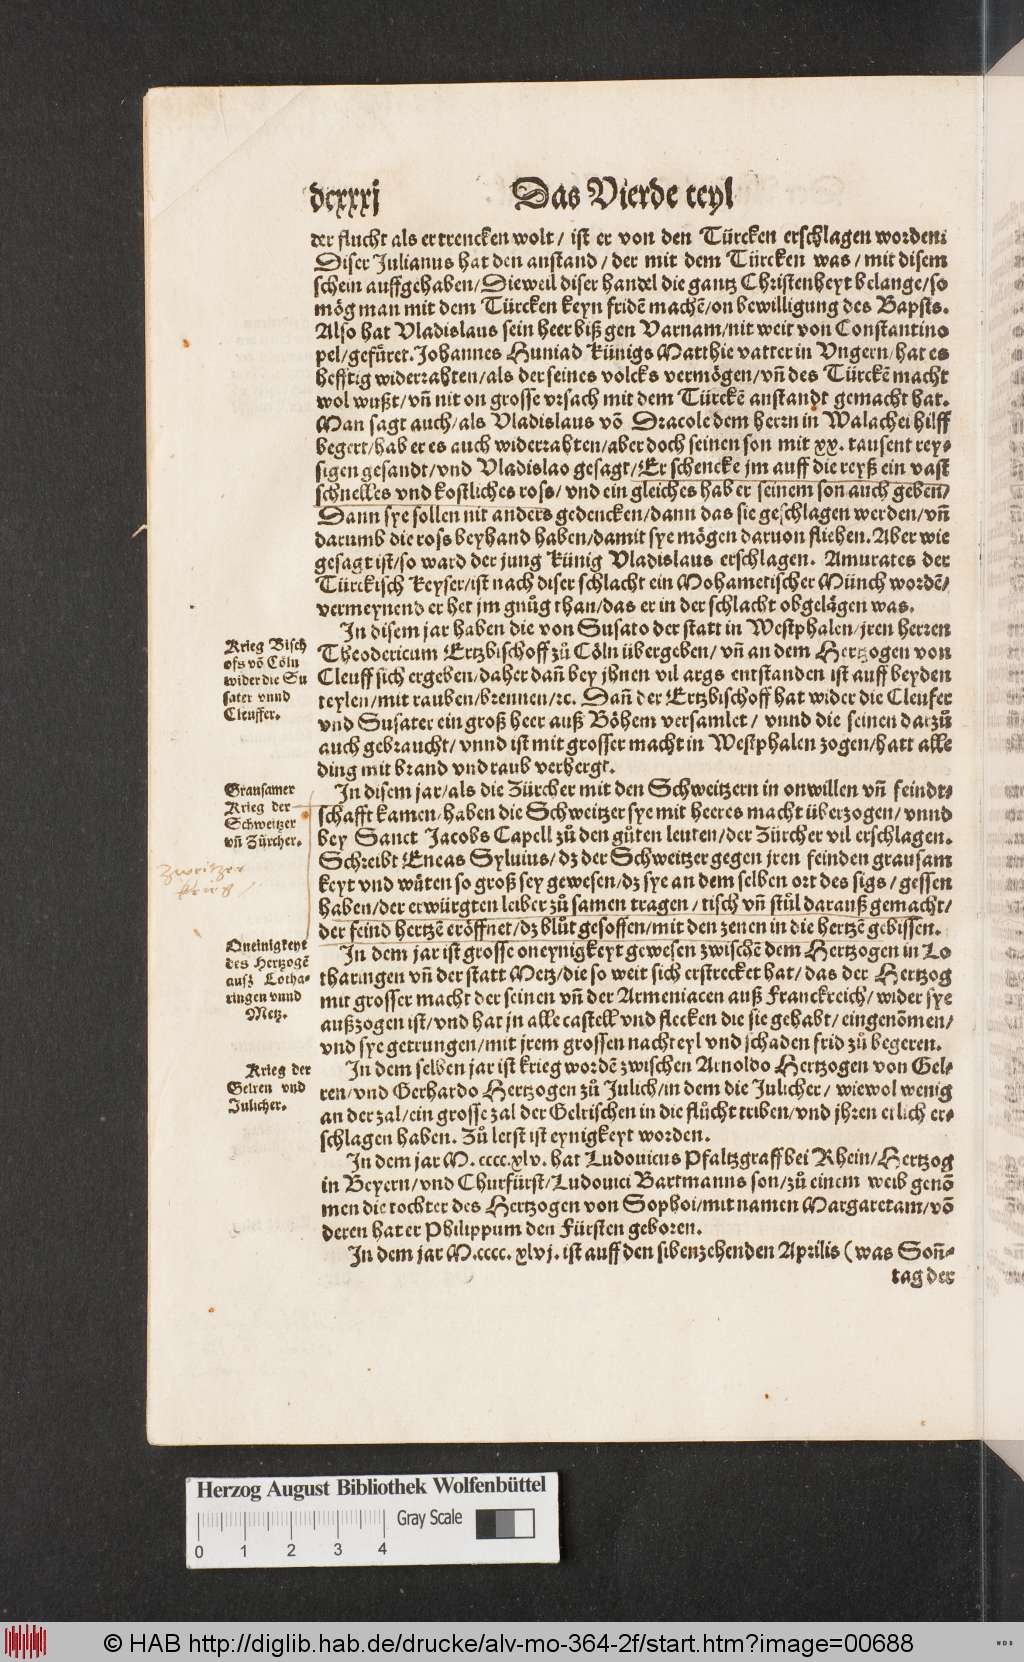 dcxxxj
Das Vierde teyl
der flucht als er trencken wolt / ist er von den Türcken erschlagen worden:
Diser Julianus hat den anstand / der mit dem Türcken was / mit disem
schein auffgehaben / Dieweil diser handel die gantz Christenheyt belange / so
mög man mit dem Türcken keyn fridē machē / on bewilligung des Bapsts.
Also hat Vladislaus sein heer biß gen Varnam / nit weit von Constantino
pel / gefüret. Johannes Huniad Künigs Matthie vatter in Vngern / hat es
hefftig widerrahten / als der seines volcks vermögen / vñ des Türckē macht
wol wußt / vñ nit on grosse vrsach mit dem Türckē anstandt gemacht hat.
Man sagt auch / als Vladislaus vō Dracole dem herrn in Walachei hilff
begert / hab er es auch widerrahten / aber doch seinen son mit xx. tausent rey-
sigen gesandt / vnd Vladislao gesagt / Er schencke jm auff die reyß ein vast
schnelles vnd kostliches ross / vnd ein gleiches hab er seinem son auch geben /
Dann sye sollen nit anders gedencken / dann das sie geschlagen werden / vñ
darumb die ross beyhand haben / damit sye mögen daruon fliehen. Aber wie
gesagt ist / so ward der jung Künig Vladislaus erschlagen. Amurates der
Türckisch Keyser / ist nach diser schlacht ein Mohametischer Münch wordē /
vermeynend er het jm gnůg than / das er in der schlacht obgelägen was.
In disem jar haben die von Susato der statt in Westphalen / jren herren
Theodericum Ertzbischoff zů Cöln übergeben / vñ an dem Hertzogen von
Cleuff sich ergeben / daher dañ bey jhnen vil args entstanden ist auff beyden
teylen / mit rauben / brennen / ꝛc. Dañ der Ertzbischoff hat wider die Cleufer
vnd Susater ein groß heer auß Böhem versamlet / vnnd die seinen darzů
auch gebraucht / vnnd ist mit grosser macht in Westphalen zogen / hatt alle
ding mit brand vnd raub verhergt.
Krieg Bisch
ofs vō Cöln
wider die Su
sater vnnd
Cleuffer.
In disem jar / als die Zürcher mit den Schweitzern in onwillen vñ feindt-
schafft kamen / haben die Schweitzer sye mit heeres macht überzogen / vnnd
bey Sanct Jacobs Capell zů den gůten leuten / der Zürcher vil erschlagen.
Schreibt Eneas Syluius / dz der Schweitzer gegen jren feinden grausam
keyt vnd wüten so groß sey gewesen / dz sye an dem selben ort des sigs / gessen
haben / der erwürgten leiber zů samen tragen / tisch vñ stůl darauß gemacht /
der feind hertzē eröffnet / dz blůt gesoffen / mit den zenen in die hertzē gebissen.
Grausamer
Krieg der
Schweitzer
vñ Zürcher.
Zweitzer
krieg
In dem jar ist grosse oneynigkeyt gewesen zwischē dem Hertzogen in Lo
tharingen vñ der statt Metz / die so weit sich erstrecket hat / das der Hertzog
mit grosser macht der seinen vñ der Armeniacen auß Franckreich / wider sye
außzogen ist / vnd hat jn alle castell vnd flecken die sie gehabt / eingenōmen /
vnd sye getrungen / mit jrem grossen nachteyl vnd schaden frid zů begeren.
Oneinigkeyt
des Hertzogē
auß Lotha-
ringen vnnd
Metz.
In dem selben jar ist krieg wordē zwischen Arnoldo Hertzogen von Gel-
ren / vnd Gerhardo Hertzogen zů Julich / in dem die Julicher / wiewol wenig
an der zal / ein grosse zal der Gelrischen in die flůcht triben / vnd jhren etlich er-
schlagen haben. Zů letst ist eynigkeyt worden.
Krieg der
Gelren vnd
Julicher.
In dem jar M. cccc. xlv. hat Ludouicus Pfaltzgraff bei Rhein / Hertzog
in Beyern / vnd Churfürst / Ludouici Bartmanns son / zů einem weib genō
men die tochter des Hertzogen von Sophoi / mit namen Margaretam / vō
deren hat er Philippum den Fürsten geboren.
In dem jar M. cccc. xlvj. ist auff den sibenzehenden Aprilis (was Soñ-
tag der
Herzog August Bibliothek Wolfenbüttel
Gray Scale
0 1 2 3 4
© HAB http://diglib.hab.de/drucke/alv-mo-364-2f/start.htm?image=00688